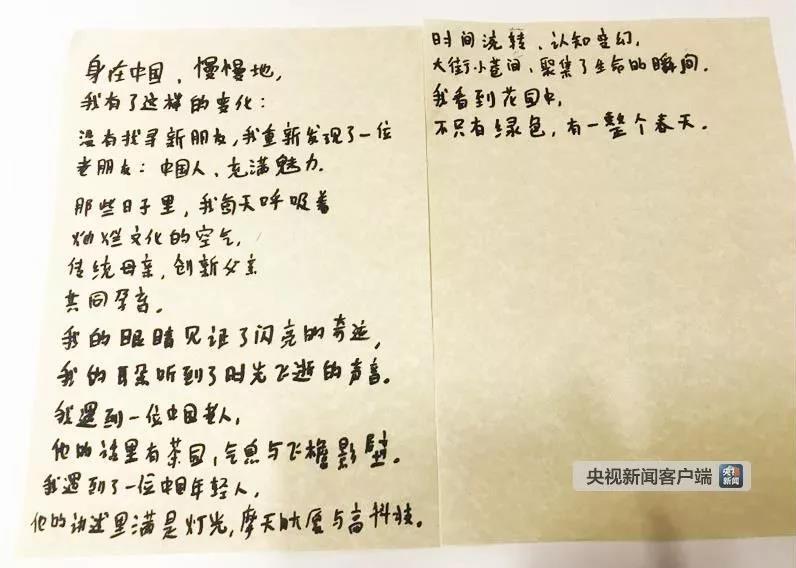 身在中国，慢慢地，
我有了这样的变化：
没有找寻新朋友，我重新发现了一位
老朋友：中国人、充满魅力.
那些日子里，我每天呼吸着
灿烂文化的空气，
传统母亲，创新父亲
共同孕育。
我的眼睛见证了闪亮的奇迹，
我的耳朵听到了时光飞逝的声音。
我遇到一位中国老人，
他的话里有茶园，气息与飞檐影壁。
我遇到了一位中国年轻人，
他的讲述里满是灯光，摩天大厦与高科技。
时间流转、认知变幻，
大街小巷间、聚集了生命的瞬间.
我看到花园中，
不只有绿色，有一整个春天.
央视新闻客户端
央视
新闻